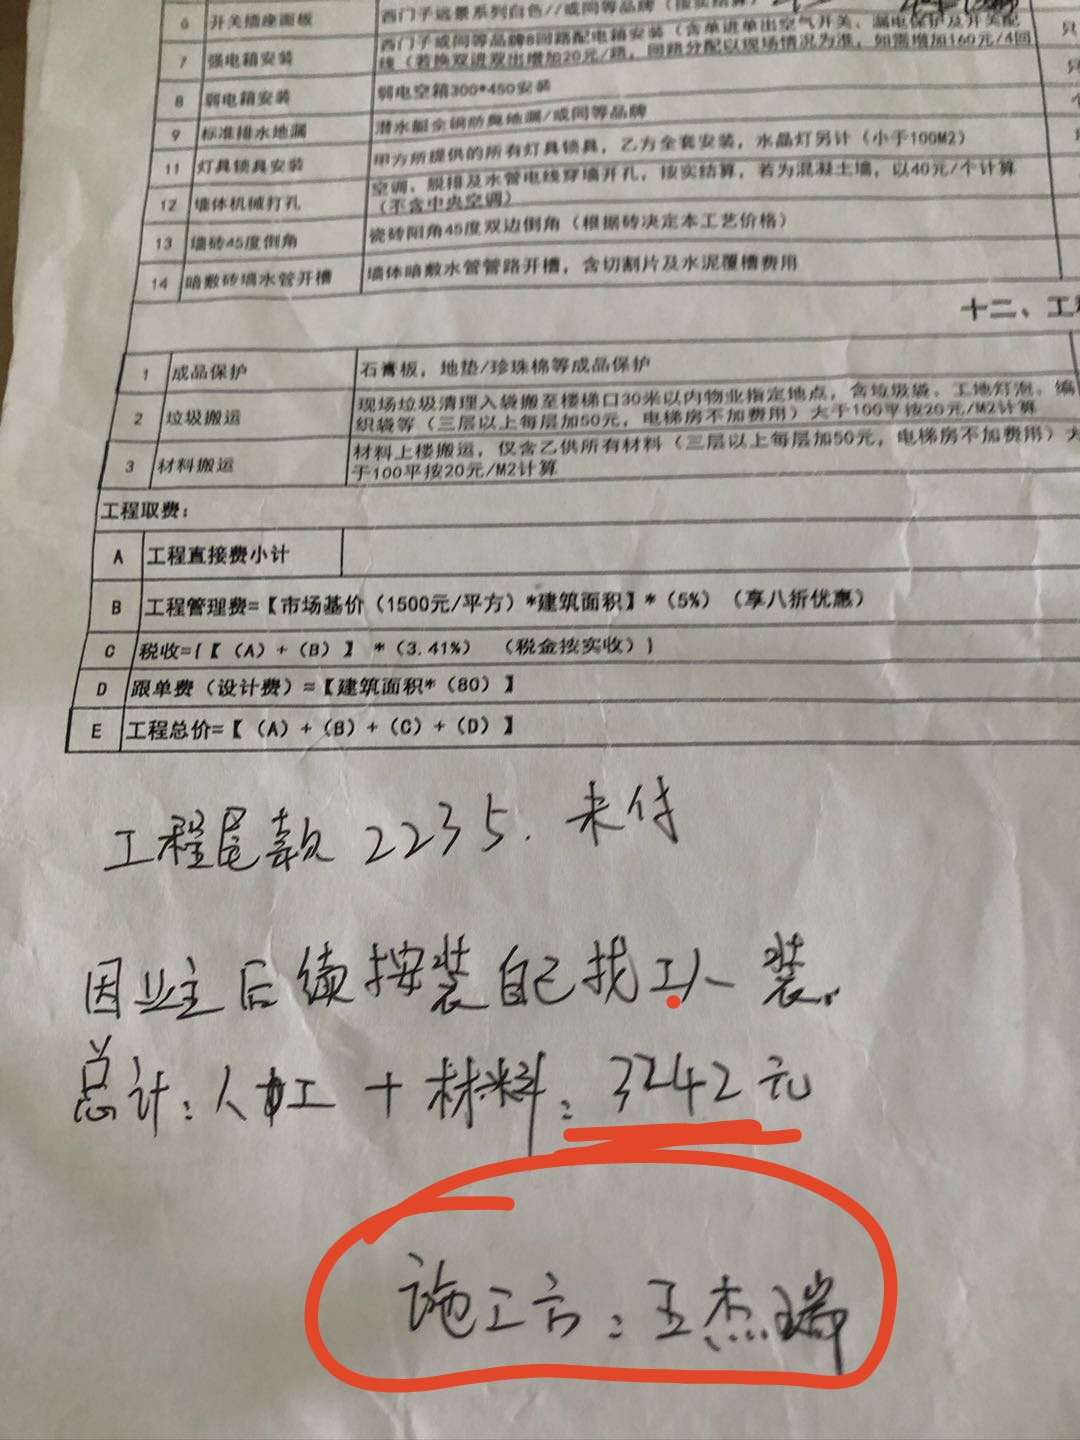 6 开关插座面板 西门子远景系列白色//或同等品牌（按实结算）
7 强电箱安装 西门子或同等品牌8回路配电箱安装（含单进单出空气开关、漏电保护及开关配
线（若换双进双出增加20元/路，回路分配以现场情况为准，如需增加160元/4回 只
8 弱电箱安装 弱电空箱300*450安装 只
9 标准排水地漏 潜水艇全铜防臭地漏/或同等品牌 个
11 灯具锁具安装 甲方所提供的所有灯具锁具，乙方全套安装，水晶灯另计（小于100M2）
12 墙体机械打孔 空调、脱排及水管电线穿墙开孔，按实结算，若为混凝土墙，以40元/个计算
（不含中央空调）
13 墙砖45度倒角 瓷砖阳角45度双边倒角（根据砖决定本工艺价格）
14 暗敷砖墙水管开槽 墙体暗敷水管管路开槽，含切割片及水泥覆槽费用
十二、工程
1 成品保护 石膏板，地垫/珍珠棉等成品保护
2 垃圾搬运 现场垃圾清理入袋搬至楼梯口30米以内物业指定地点，含垃圾袋、工地灯泡、编
织袋等（三层以上每层加50元，电梯房不加费用）大于100平按20元/M2计算
3 材料搬运 材料上楼搬运，仅含乙供所有材料（三层以上每层加50元，电梯房不加费用）大
于100平按20元/M2计算
工程取费：
A 工程直接费小计
B 工程管理费=【市场基价（1500元/平方）*建筑面积】*（5%）（享八折优惠）
C 税收={【（A）+（B）】*（3.41%） （税金按实收）}
D 跟单费（设计费）=【建筑面积*（80）】
E 工程总价=【（A）+（B）+（C）+（D）】
工程尾款2235.未付
因业主后续按装自己找工人装.
总计：人工+材料：3242元
施工方：王杰瑞